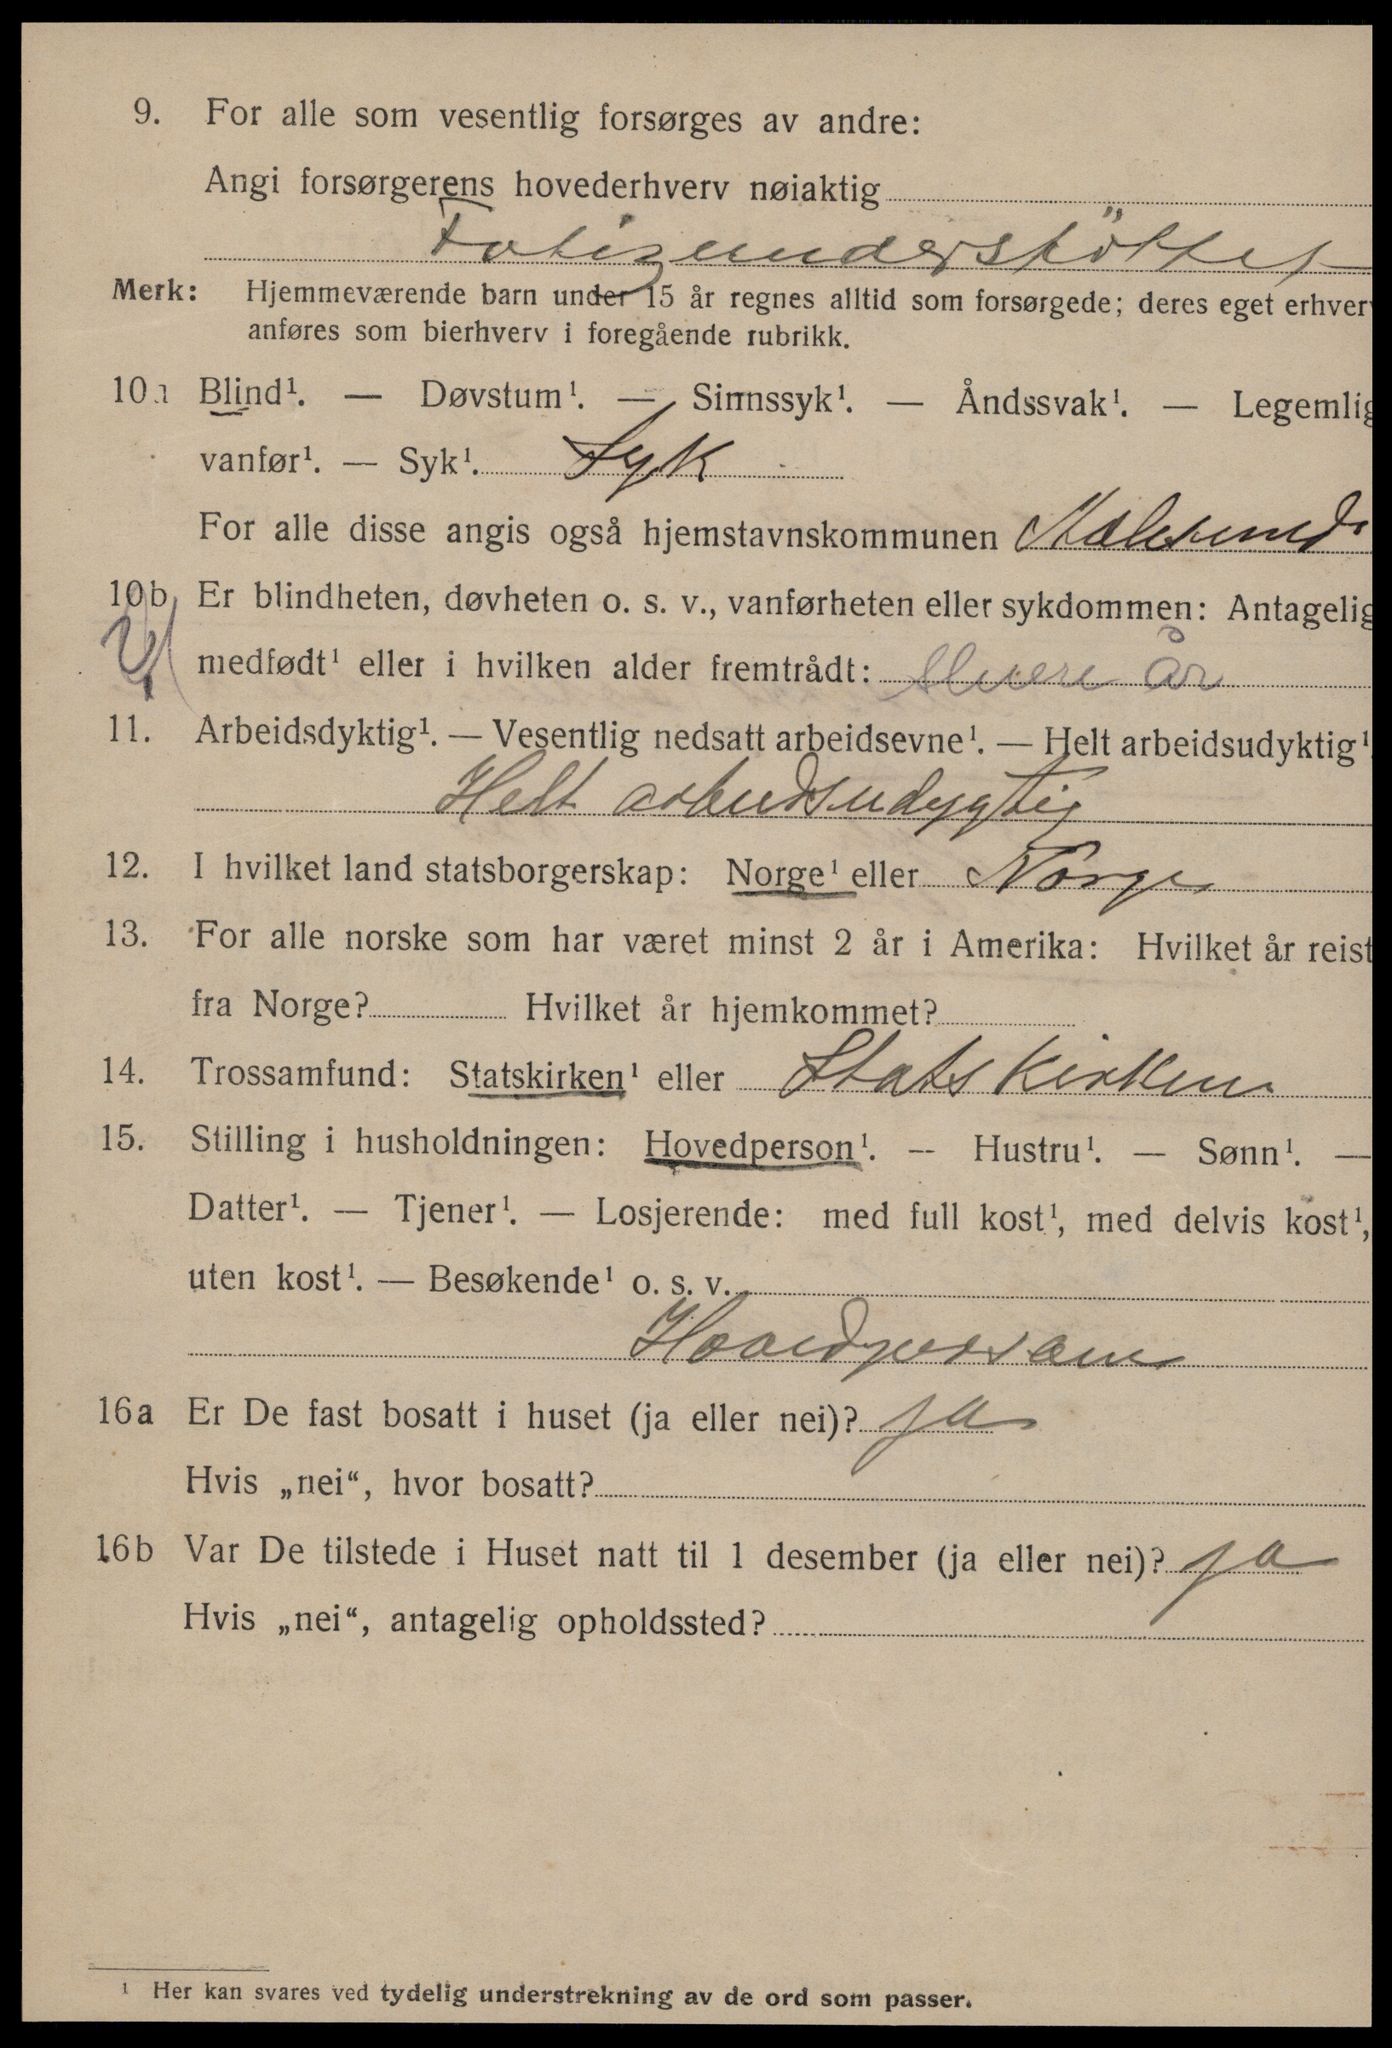 9. For alle som vesentlig forsørges av andre:
Angi forsørgerens hovederhverv nøiaktig
Fatigunderstöttet
Merk: Hjemmeværende barn under 15 år regnes alltid som forsørgede; deres eget erhverv
anføres som bierhverv i foregående rubrikk.
10a Blind¹. — Døvstum¹. — Sinnssyk¹. — Åndssvak¹. — Legemlig
vanfør¹. — Syk¹. Syk
For alle disse angis også hjemstavnskommunen Aalesund
10b Er blindheten, døvheten o. s. v., vanførheten eller sykdommen: Antagelig
medfødt¹ eller i hvilken alder fremtrådt: år
11. Arbeidsdyktig¹. — Vesentlig nedsatt arbeidsevne¹. — Helt arbeidsudyktig¹.
Helt arbeidsudygtig
12. I hvilket land statsborgerskap: Norge¹ eller Norge
13. For alle norske som har været minst 2 år i Amerika: Hvilket år reist
fra Norge? Hvilket år hjemkommet?
14. Trossamfund: Statskirken¹ eller Statskirken
15. Stilling i husholdningen: Hovedperson¹. — Hustru¹. — Sønn¹. —
Datter¹. — Tjener¹. — Losjerende: med full kost¹, med delvis kost¹,
uten kost¹. — Besøkende¹ o. s. v.
Hovedperson
16a Er De fast bosatt i huset (ja eller nei)? ja
Hvis „nei“, hvor bosatt?
16b Var De tilstede i Huset natt til 1 desember (ja eller nei)? ja
Hvis „nei“, antagelig opholdssted?
¹ Her kan svares ved tydelig understrekning av de ord som passer.